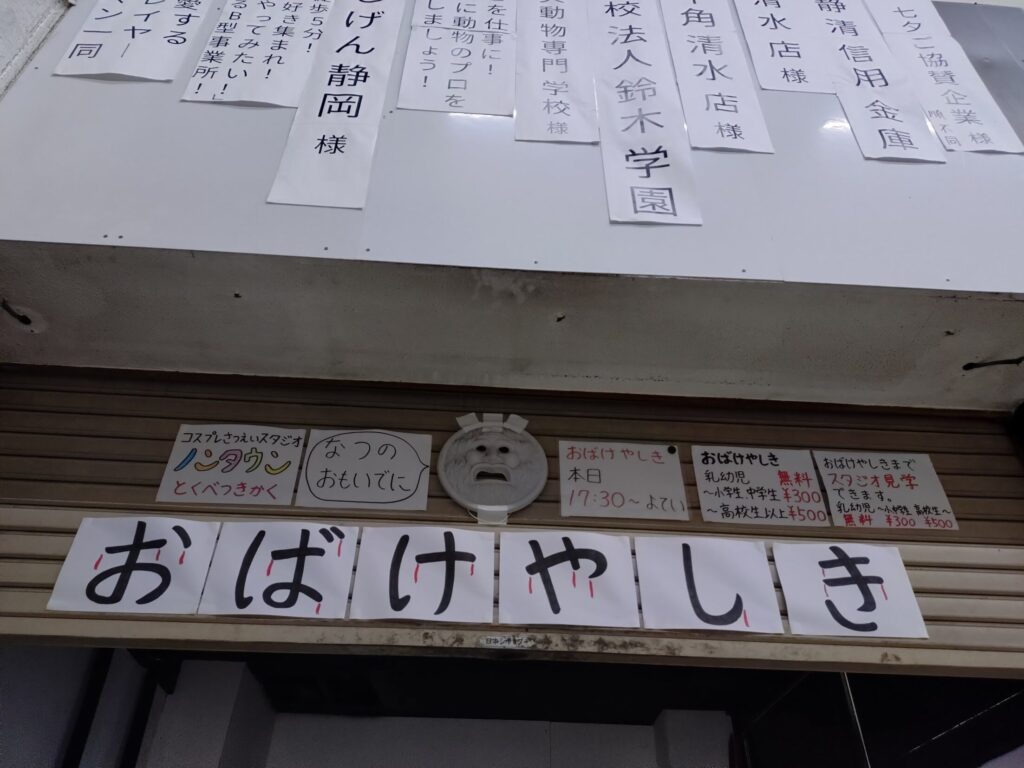 七夕ご協賛企業様
順不同
静清信用金庫
清水店様
角清水店様
校法人鈴木学園
動物専門学校様
を仕事に！
に動物のプロを
しましょう！
しげん静岡様
徒歩5分！
好き集まれ！
やってみたい！」
るB型事業所！
愛する
レイヤー
ン一同
コスプレさつえいスタジオ
ノンタウン
とくべつきかく
なつの
おもいでに
おばけやしき
本日
17:30～よてい
おばけやしき
乳幼児 無料
～小学生 中学生 ¥300
～高校生以上 ¥500
おばけやしきまで
スタジオ見学
できます。
乳幼児 ～小中学生 高校生～
無料 ¥300 ¥500
おばけやしき